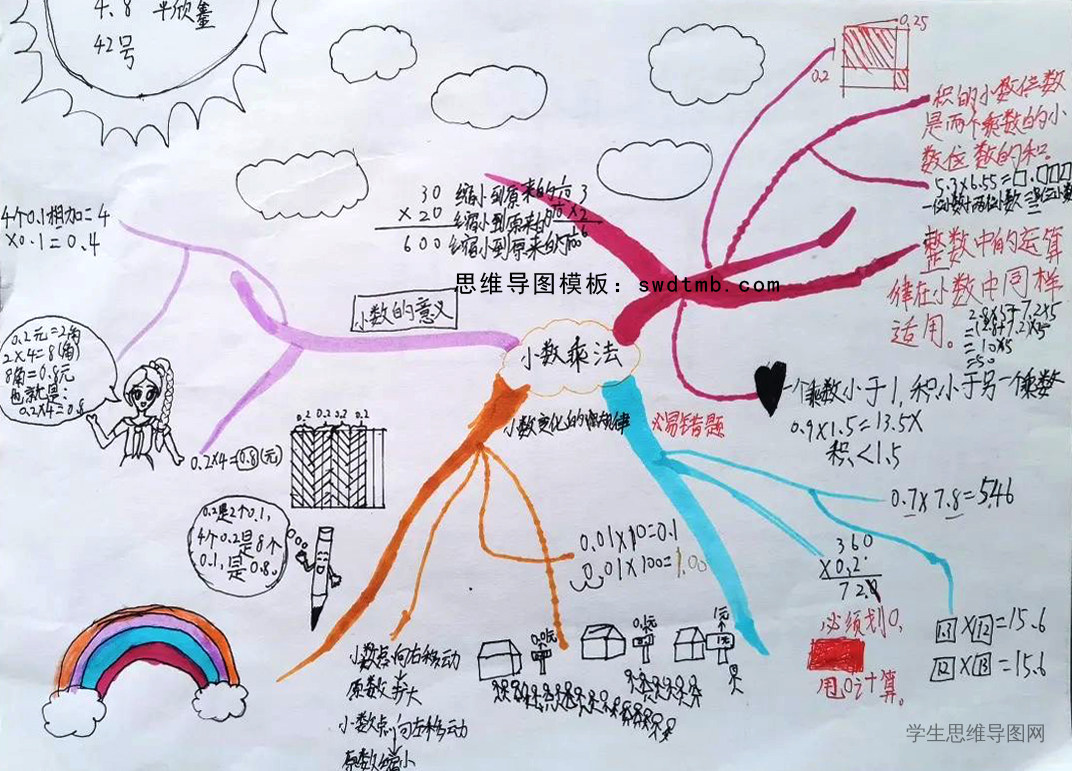 4、8 平欣鑫
42号
0.25
0.2
积的小数位数
是两个乘数的小
数位数的和。
5.3×6.55=□.□□□
一位小数 两位小数
整数中的运算
律在小数中同样
适用。
2.8×5+7.2×5
=(2.8+7.2)×5
=10×5
=50
一个乘数小于1,积小于另一个乘数
0.9×1.5=13.5×
积<1.5
30 缩小到原来的 3
×20 缩小到原来的 ×2
600 缩小到原来的 6
思维导图模板：swdtmb.com
小数的意义
小数乘法
4个0.1相加=4
×0.1=0.4
0.2元=2角
2×4=8(角)
8角=0.8元
也就是:
0.2×4=0.8
0.2 0.2 0.2 0.2
0.2×4=0.8(元)
0.2是2个0.1,
4个0.2是8个
0.1,是0.8。
易错题
0.7×7.8=5.46
360
×0.2
720
必须划0,
甩0计算。
1.3×12=15.6
12×1.3=15.6
0.01×10=0.1
0.01×100=1.00
小数点向右移动
原数扩大
小数点向左移动
原数缩小
0.01元
0.1元
1元
学生思维导图网